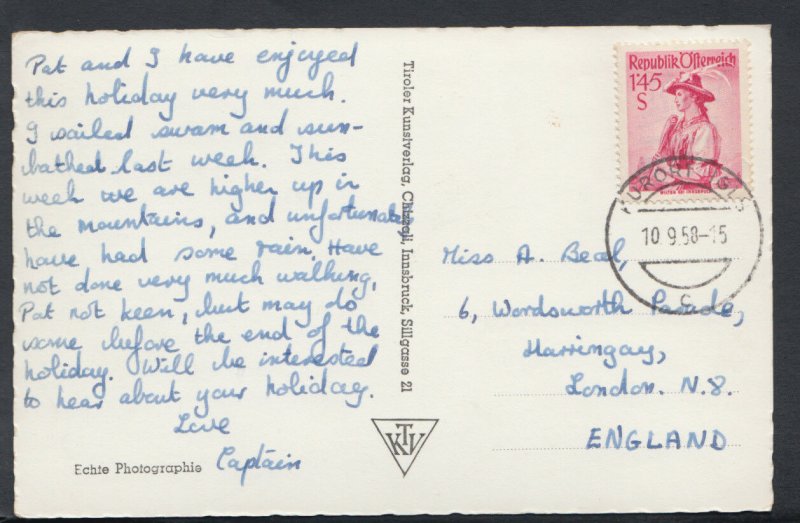 Pat and I have enjoyed
this holiday very much.
I sailed swam and sun-
bathed last week. This
week we are higher up in
the mountains, and unfortunately
have had some rain. Have
not done very much walking,
Pat not keen, but may do
some before the end of the
holiday. Will be interested
to hear about your holiday.
Love
Captain
Echte Photographie
Tiroler Kunstverlag, Chizzali, Innsbruck, Sillgasse 21
KTV
Republik Österreich
1'45
S
WILTEN BEI INNSBRUCK
KURORT IGLS
10.9.58-15
c
Miss A. Beal,
6, Wordsworth Parade,
Harringay,
London. N.8.
ENGLAND